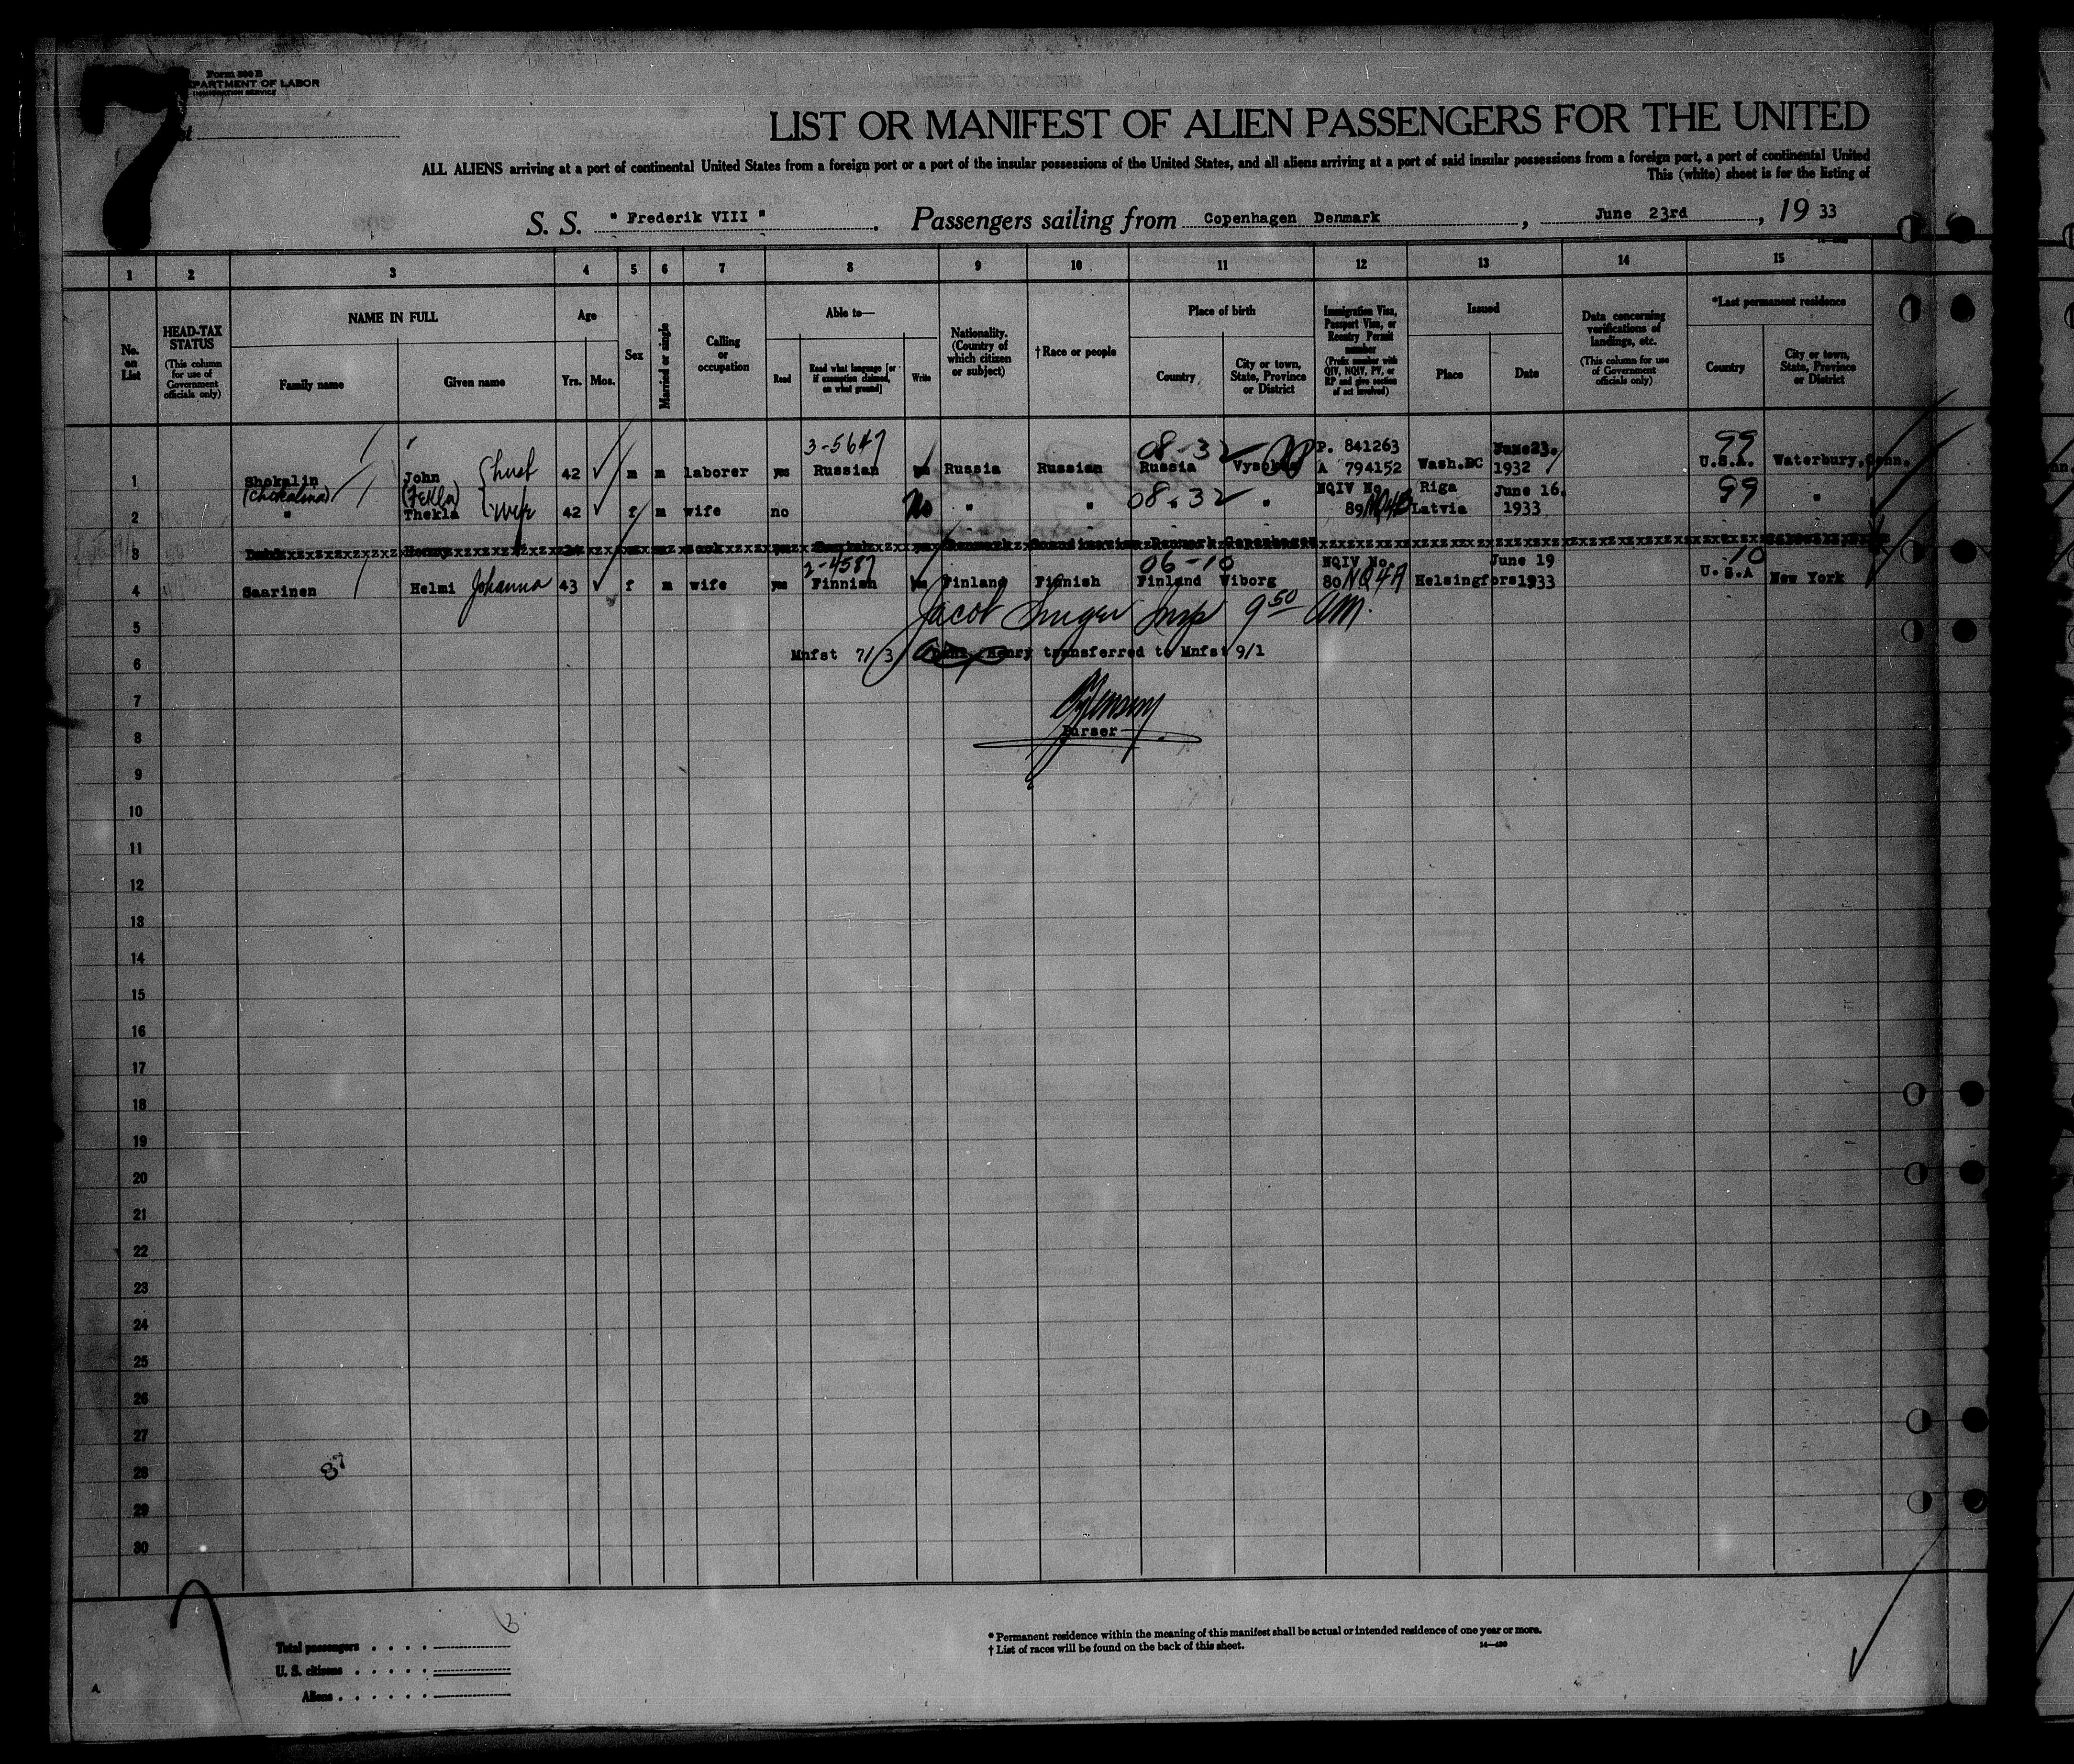 7
Form 500 B
DEPARTMENT OF LABOR
IMMIGRATION SERVICE
LIST OR MANIFEST OF ALIEN PASSENGERS FOR THE UNITED
ALL ALIENS arriving at a port of continental United States from a foreign port or a port of the insular possessions of the United States, and all aliens arriving at a port of said insular possessions from a foreign port, a port of continental United
This (white) sheet is for the listing of
S. S. " Frederik VIII " . Passengers sailing from Copenhagen Denmark , June 23rd , 19 33
1 2 3 4 5 6 7 8 9 10 11 12 13 14 15
No. on List
HEAD-TAX STATUS (This column for use of Government officials only)
NAME IN FULL
Family name
Given name
Age
Yrs. Mos.
Sex
Married or single
Calling or occupation
Able to—
Read
Read what language [or if exemption claimed, on what ground]
Write
Nationality. (Country of which citizen or subject)
†Race or people
Place of birth
Country
City or town, State, Province or District
Immigration Visa, Passport Visa, or Reentry Permit number (Prefix number with QIV, NQIV, PV, or RP and give section of act involved)
Issued
Place
Date
Data concerning verifications of landings, etc. (This column for use of Government officials only)
*Last permanent residence
Country
City or town, State, Province or District
3-5647 08-32 P. 841263 June 23. 99
1 Shokalin John husb 42 m m laborer yes Russian Russia Russian Russia A 794152 Wash.DC 1932 U.S.A. Waterbury, Conn.
(Chokalina) (Fekla) wife No 08-32 NQIV No Riga June 16. 99
2 " Thekla 42 f m wife no " " " 89 Latvia 1933 "
3 Henry Denmark Scandinavian Denmark Copenhagen
2-4587 06-10 NQIV No June 19 10
4 Saarinen Helmi Johanna 43 f m wife yes Finnish Finland Finnish Finland Viborg 80 NQ4A Helsingfors 1933 U.S.A New York
Jacob Insp 9 50 AM.
5
6 Mnfst 7/3 Henry transferred to Mnfst 9/1
7
8 Purser
9
10
11
12
13
14
15
16
17
18
19
20
21
22
23
24
25
26
27
28 87
29
30
Total passengers . . . .
U. S. citizens . . . . .
Aliens . . . . . .
* Permanent residence within the meaning of this manifest shall be actual or intended residence of one year or more.
† List of races will be found on the back of this sheet.
14—430